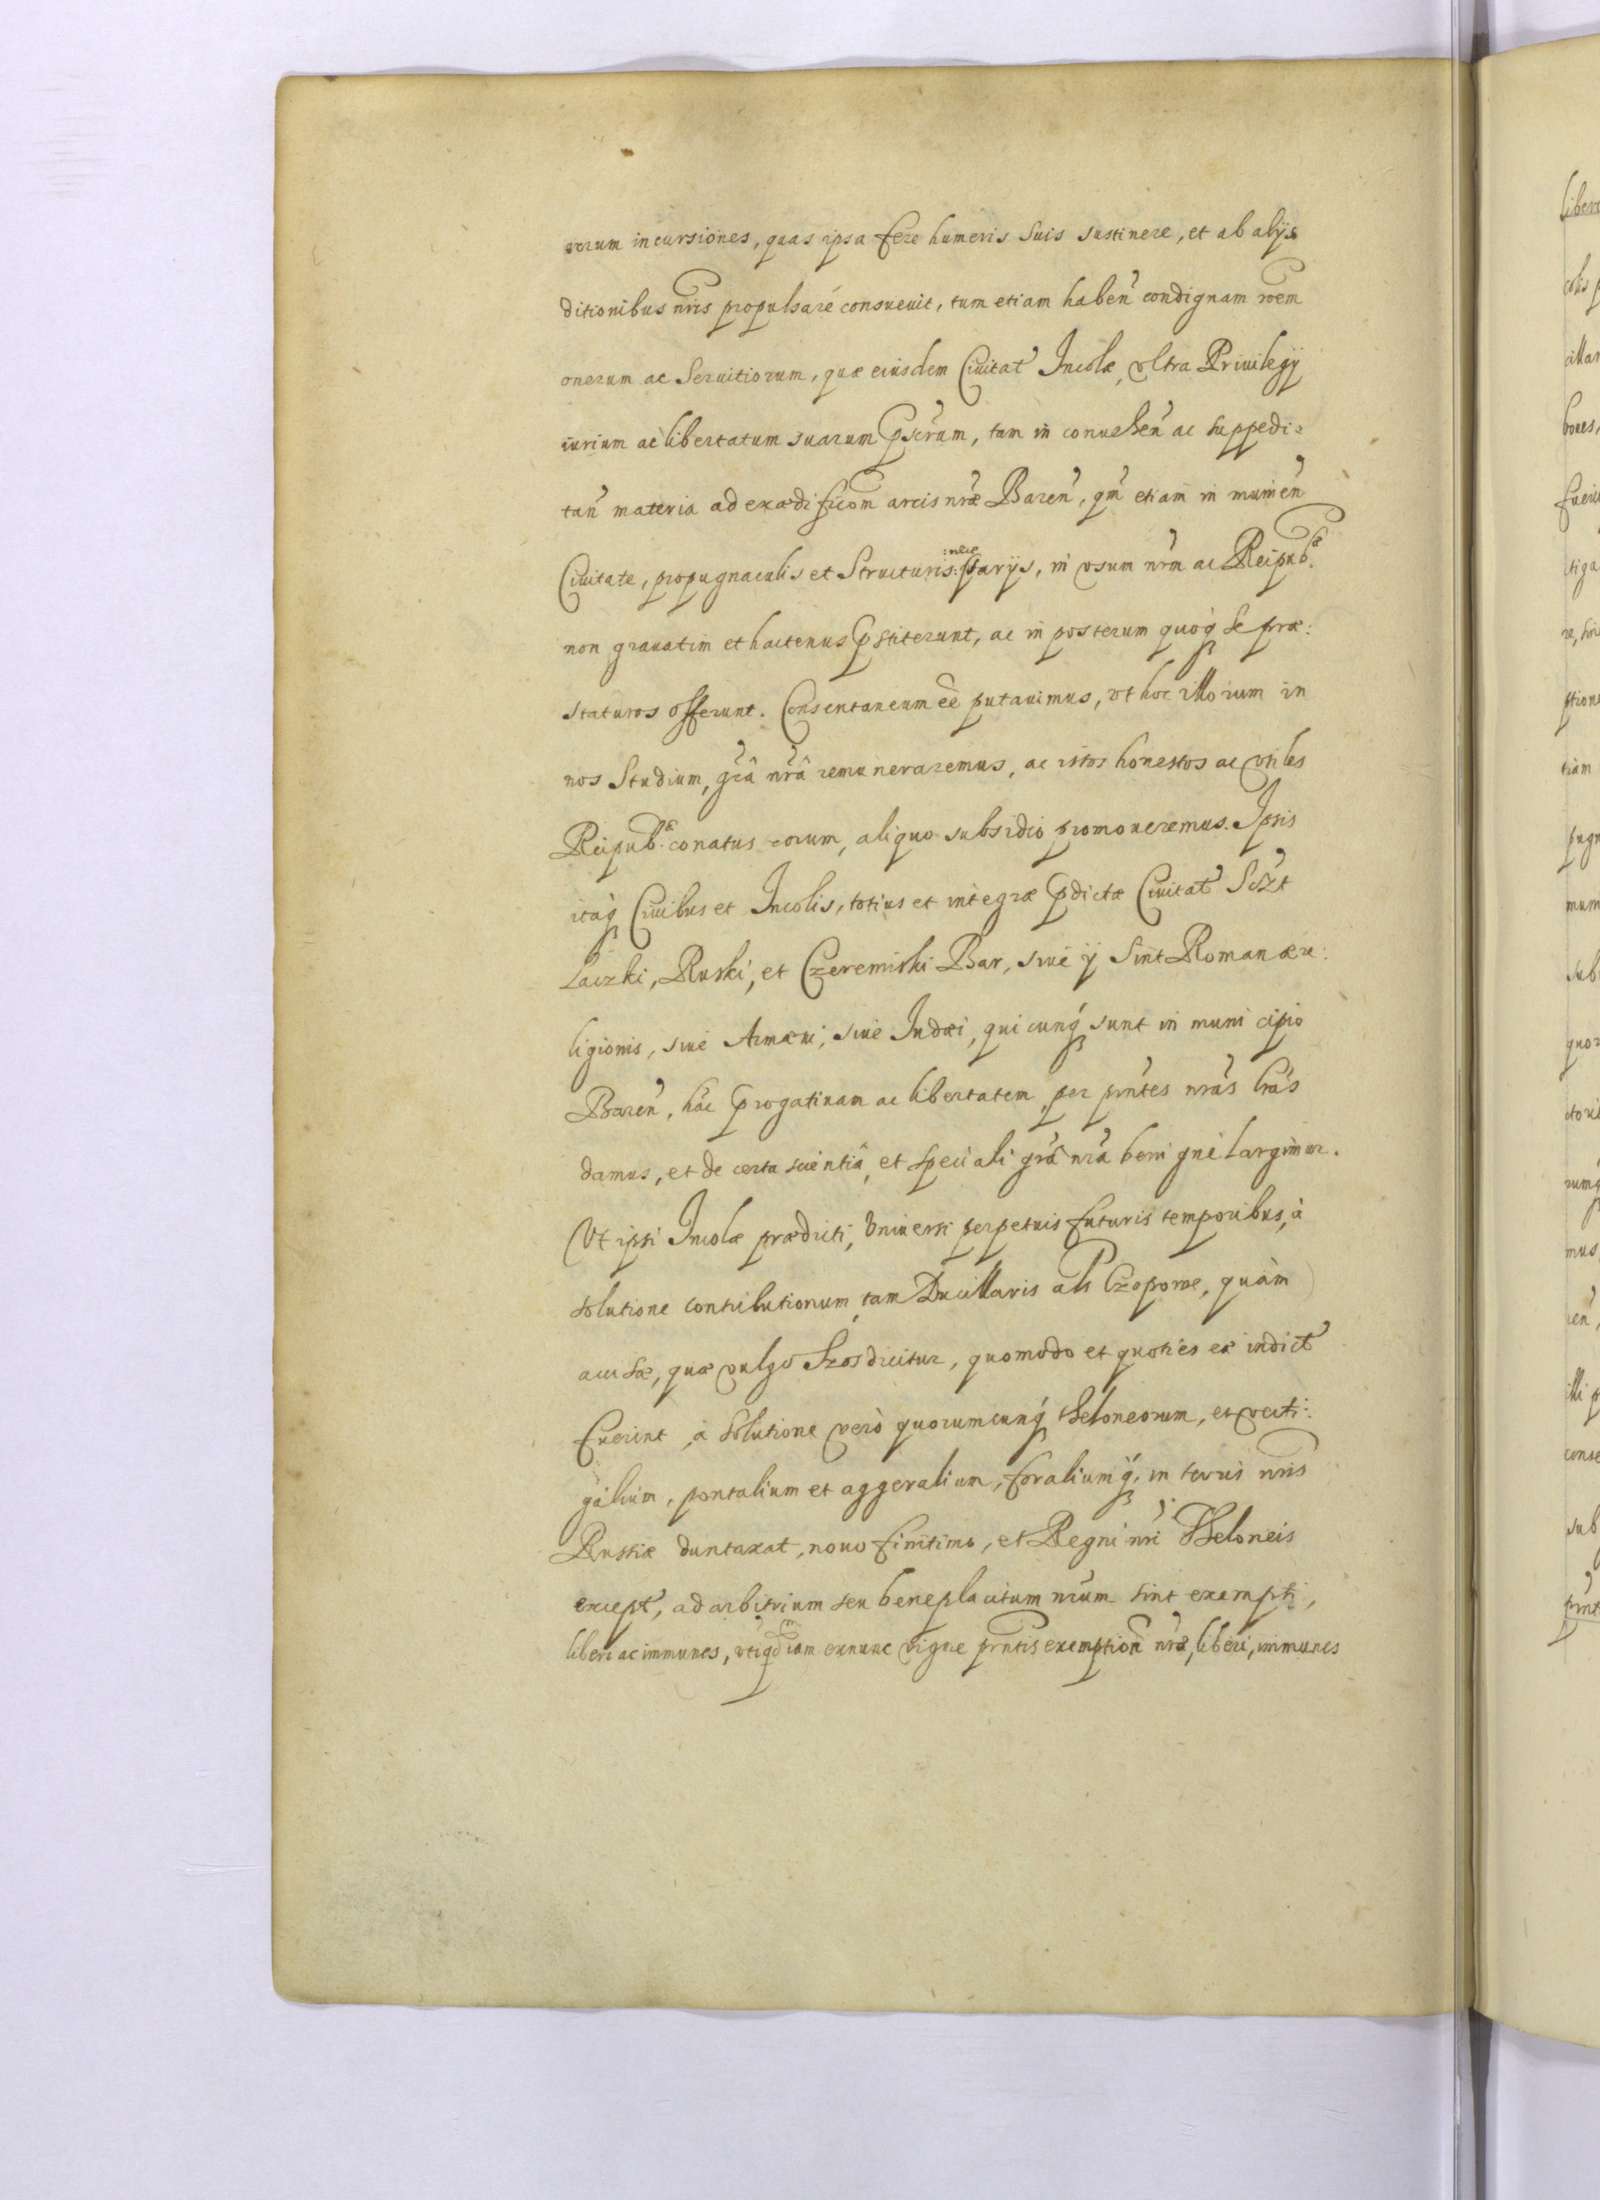 eorum incursiones, quas ipsa fere humeris suis sustinere, et ab alijs
ditionibus nr̃is propulsare consueuit, tum etiam haben̄ condignam rõem
onerum ac Seruitiorum, quæ eiusdem Ciuitat̃ Incolæ, vltra Priuilegij
iurium ac libertatum suarum p̱scr̃um, tam in conuehen̄ ac suppedi=
tan̄ materia ad exædificõm arcis nr̃æ Baren̄, qm̃ etiam in munien̄
Ciuitate, propugnaculis et Structuris :nece: ssarijs, in vsum nr̃m ac Reipub.cæ
non grauatim et hactenus p̱stiterunt, ac in posterum quoq́ꝫ se præ:
staturos offerunt. Consentaneum eẽ putauimus, vt hoc illorum in
nos Studium, gr̃â nr̃â remuneraremus, ac istos honestos ac vtiles
Reipub.cæ conatus eorum, aliquo subsidio promoueremus. Ipsis
itaq́ꝫ Ciuibus et Incolis, totius et integræ p̱dictæ Ciuitat̃ Sczt̃
Laczki, Ruski, et Czeremiski Bar, siue ij sint Romanæ re:
ligionis, siue Armæni, siue Judæi, quicunq́ꝫ sunt in municipio
Baren̄, hãc p̱rogatiuam ac libertatem, per pr̃ntes nr̃as lr̃as
damus, et de certa scientiâ, et speciali gr̃â nr̃â benignè largimur.
Vt ipsi Incolæ prædicti, Vniuersi perpetuis futuris temporibus, à
solutione contributionum, tam Ducillaris als Czopowe, quàm
accisæ, quæ vulgo Szos dicitur, quomodo et quoties ex indict̃
fuerint, à solutione verò quorumcunq́ꝫ theloneorum, et vecti:
galium, pontalium et aggeralium, foraliumq́ꝫ, in terris nr̃is
Russiæ duntaxat, nouo finitimo, et Regni nr̃i Theloneis
except̃, ad arbitrium seu beneplacitum nr̃um sint exempti,
liberi ac immunes, iam exnunc vigore pr̃ntis exemption̄ nr̃æ, liberi, immunes